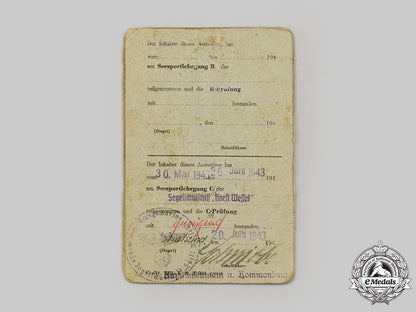 Der Inhaber dieses Ausweises hat
vom bis 194
am Seesportlehrgang B der
teilgenommen und die B-Prüfung
mit bestanden.
, den 194
(Siegel)
Schulführer
Der Inhaber dieses Ausweises hat
vom 30. Mai 1943 26. Juni 1943 194
am Seesportlehrgang C der
Segelschulschiff "Horst Wessel"
teilgenommen und die C-Prüfung
mit genügend bestanden.
Stralsund 20. Juni 1943 194
(Siegel)
u. Kommandant